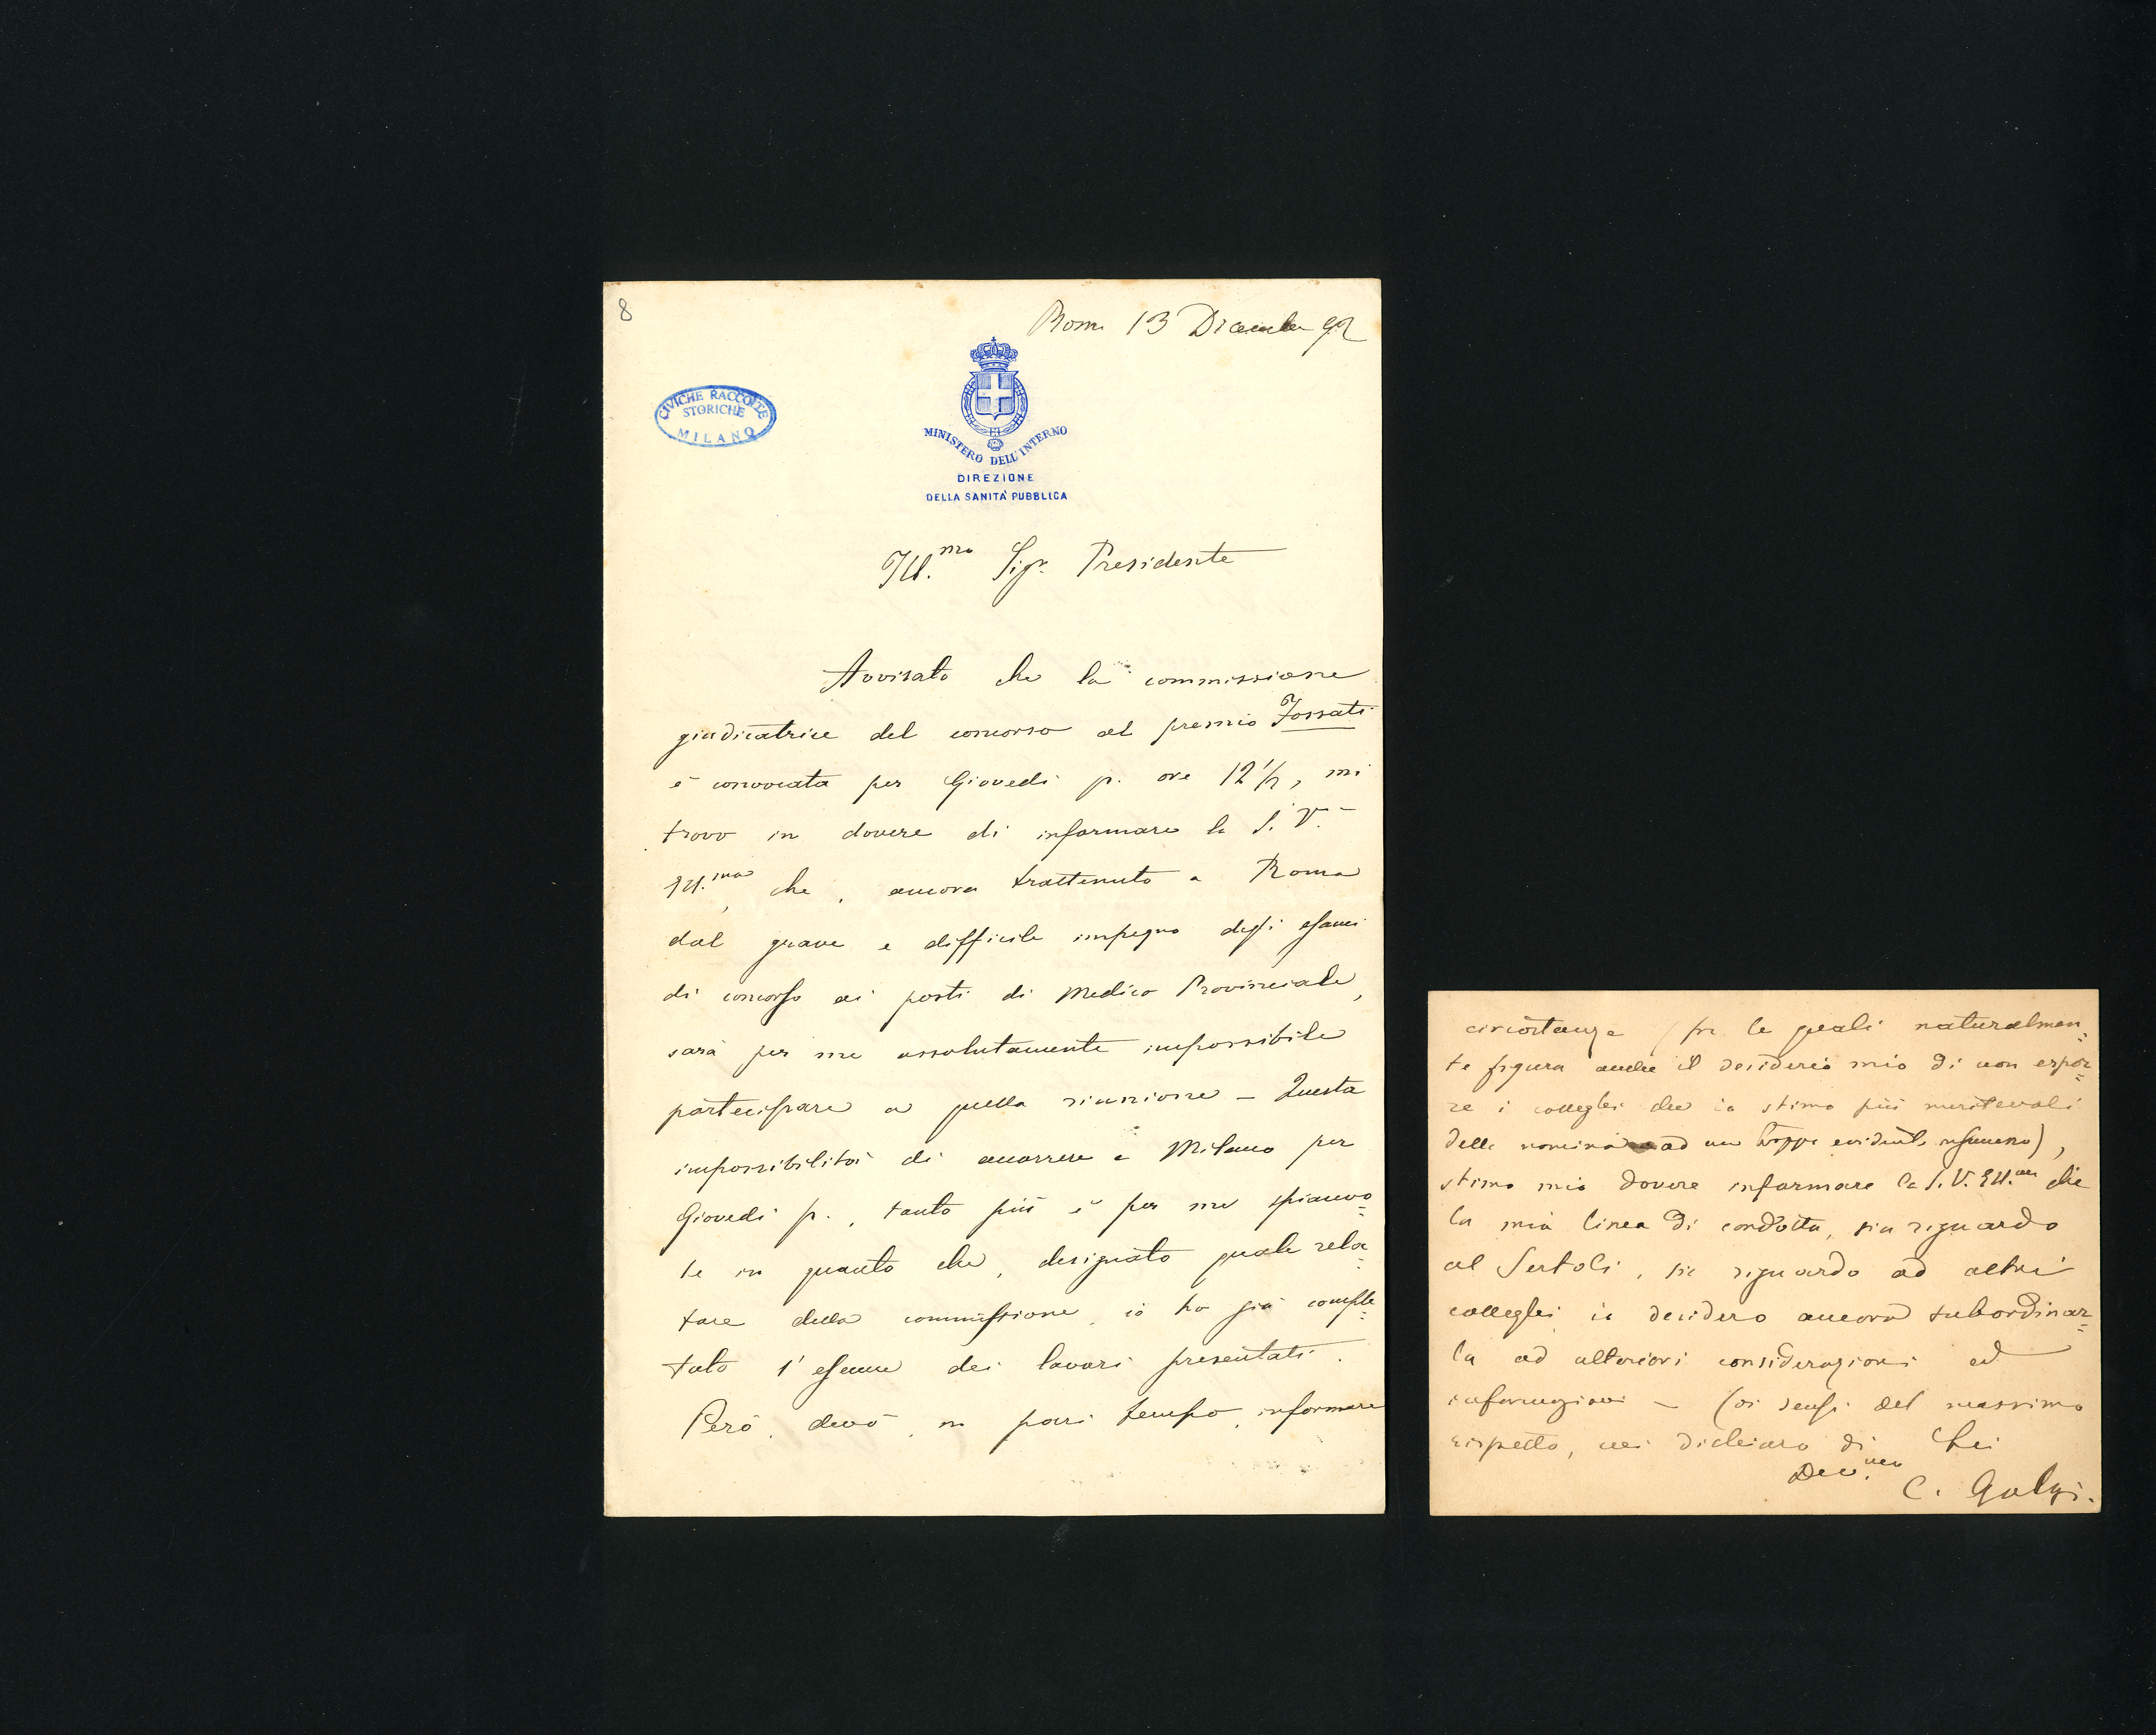 8
Roma 13 Dicembre 92
CIVICHE RACCOLTE
STORICHE
MILANO
MINISTERO DELL'INTERNO
DIREZIONE
DELLA SANITÀ PUBBLICA
Ill.mo Sigr. Presidente
Avvisato che la commissione
giudicatrice del concorso al premio Fossati
è convocata per Giovedì p. ore 12 1/2, mi
trovo in dovere di informare la S. V.
Ill.ma, che, ancora trattenuto a Roma
dal grave e difficile impegno degli esami
di concorso ai posti di Medico Provinciale,
sarà per me assolutamente impossibile
partecipare a quella riunione – Questa
impossibilità di accorrere a Milano per
Giovedì p., tanto più è per me spiacevo=
le in quanto che, designato quale rela=
tore della commissione, io ho già comple=
tato l'esame dei lavori presentati.
Però, devo, in pari tempo, informare
circostanze (fra le quali naturalmen=
te figura anche il desiderio mio di non espor=
re i colleghi che io stimo più meritevoli
della nomina ad un troppo evidente),
stimo mio dovere informare la S. V. Ill.ma che
la mia linea di condotta, sia riguardo
al Sertoli, sia riguardo ad altri
colleghi io desidero ancora subordinar=
la ad ulteriori considerazioni ed
informazioni – Coi sensi del massimo
rispetto, mi dichiaro di Lei
Dev.mo
C. Golgi.